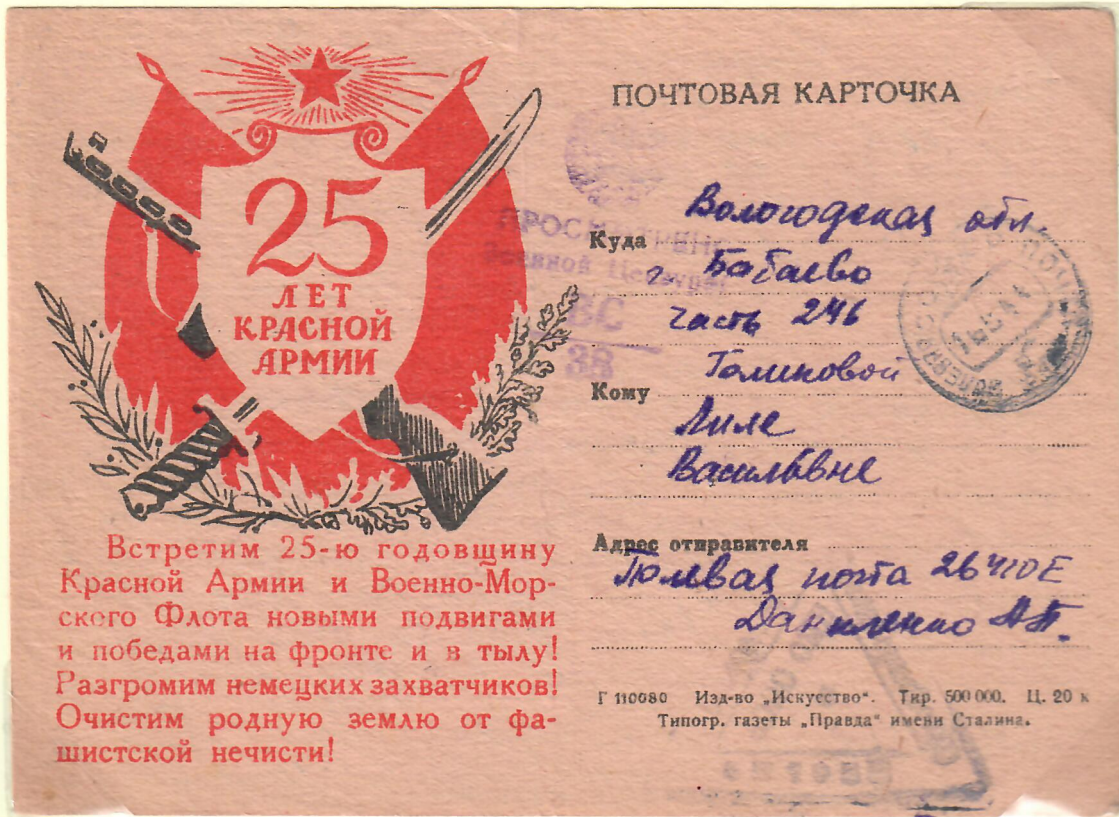 25
ЛЕТ
КРАСНОЙ
АРМИИ
Встретим 25-ю годовщину
Красной Армии и Военно-Мор-
ского Флота новыми подвигами
и победами на фронте и в тылу!
Разгромим немецких захватчиков!
Очистим родную землю от фа-
шистской нечисти!
ПОЧТОВАЯ КАРТОЧКА
Вологодская обл.
Куда г. Бабаево
часть 246
Кому Голиковой
Лиле
Васильевне
Адрес отправителя
Полевая почта 26410Е
Даниленко А.П.
Г 110080 Изд-во „Искусство“. Тир. 500 000. Ц. 20 к
Типогр. газеты „Правда“ имени Сталина.
Военной Цензурой
38